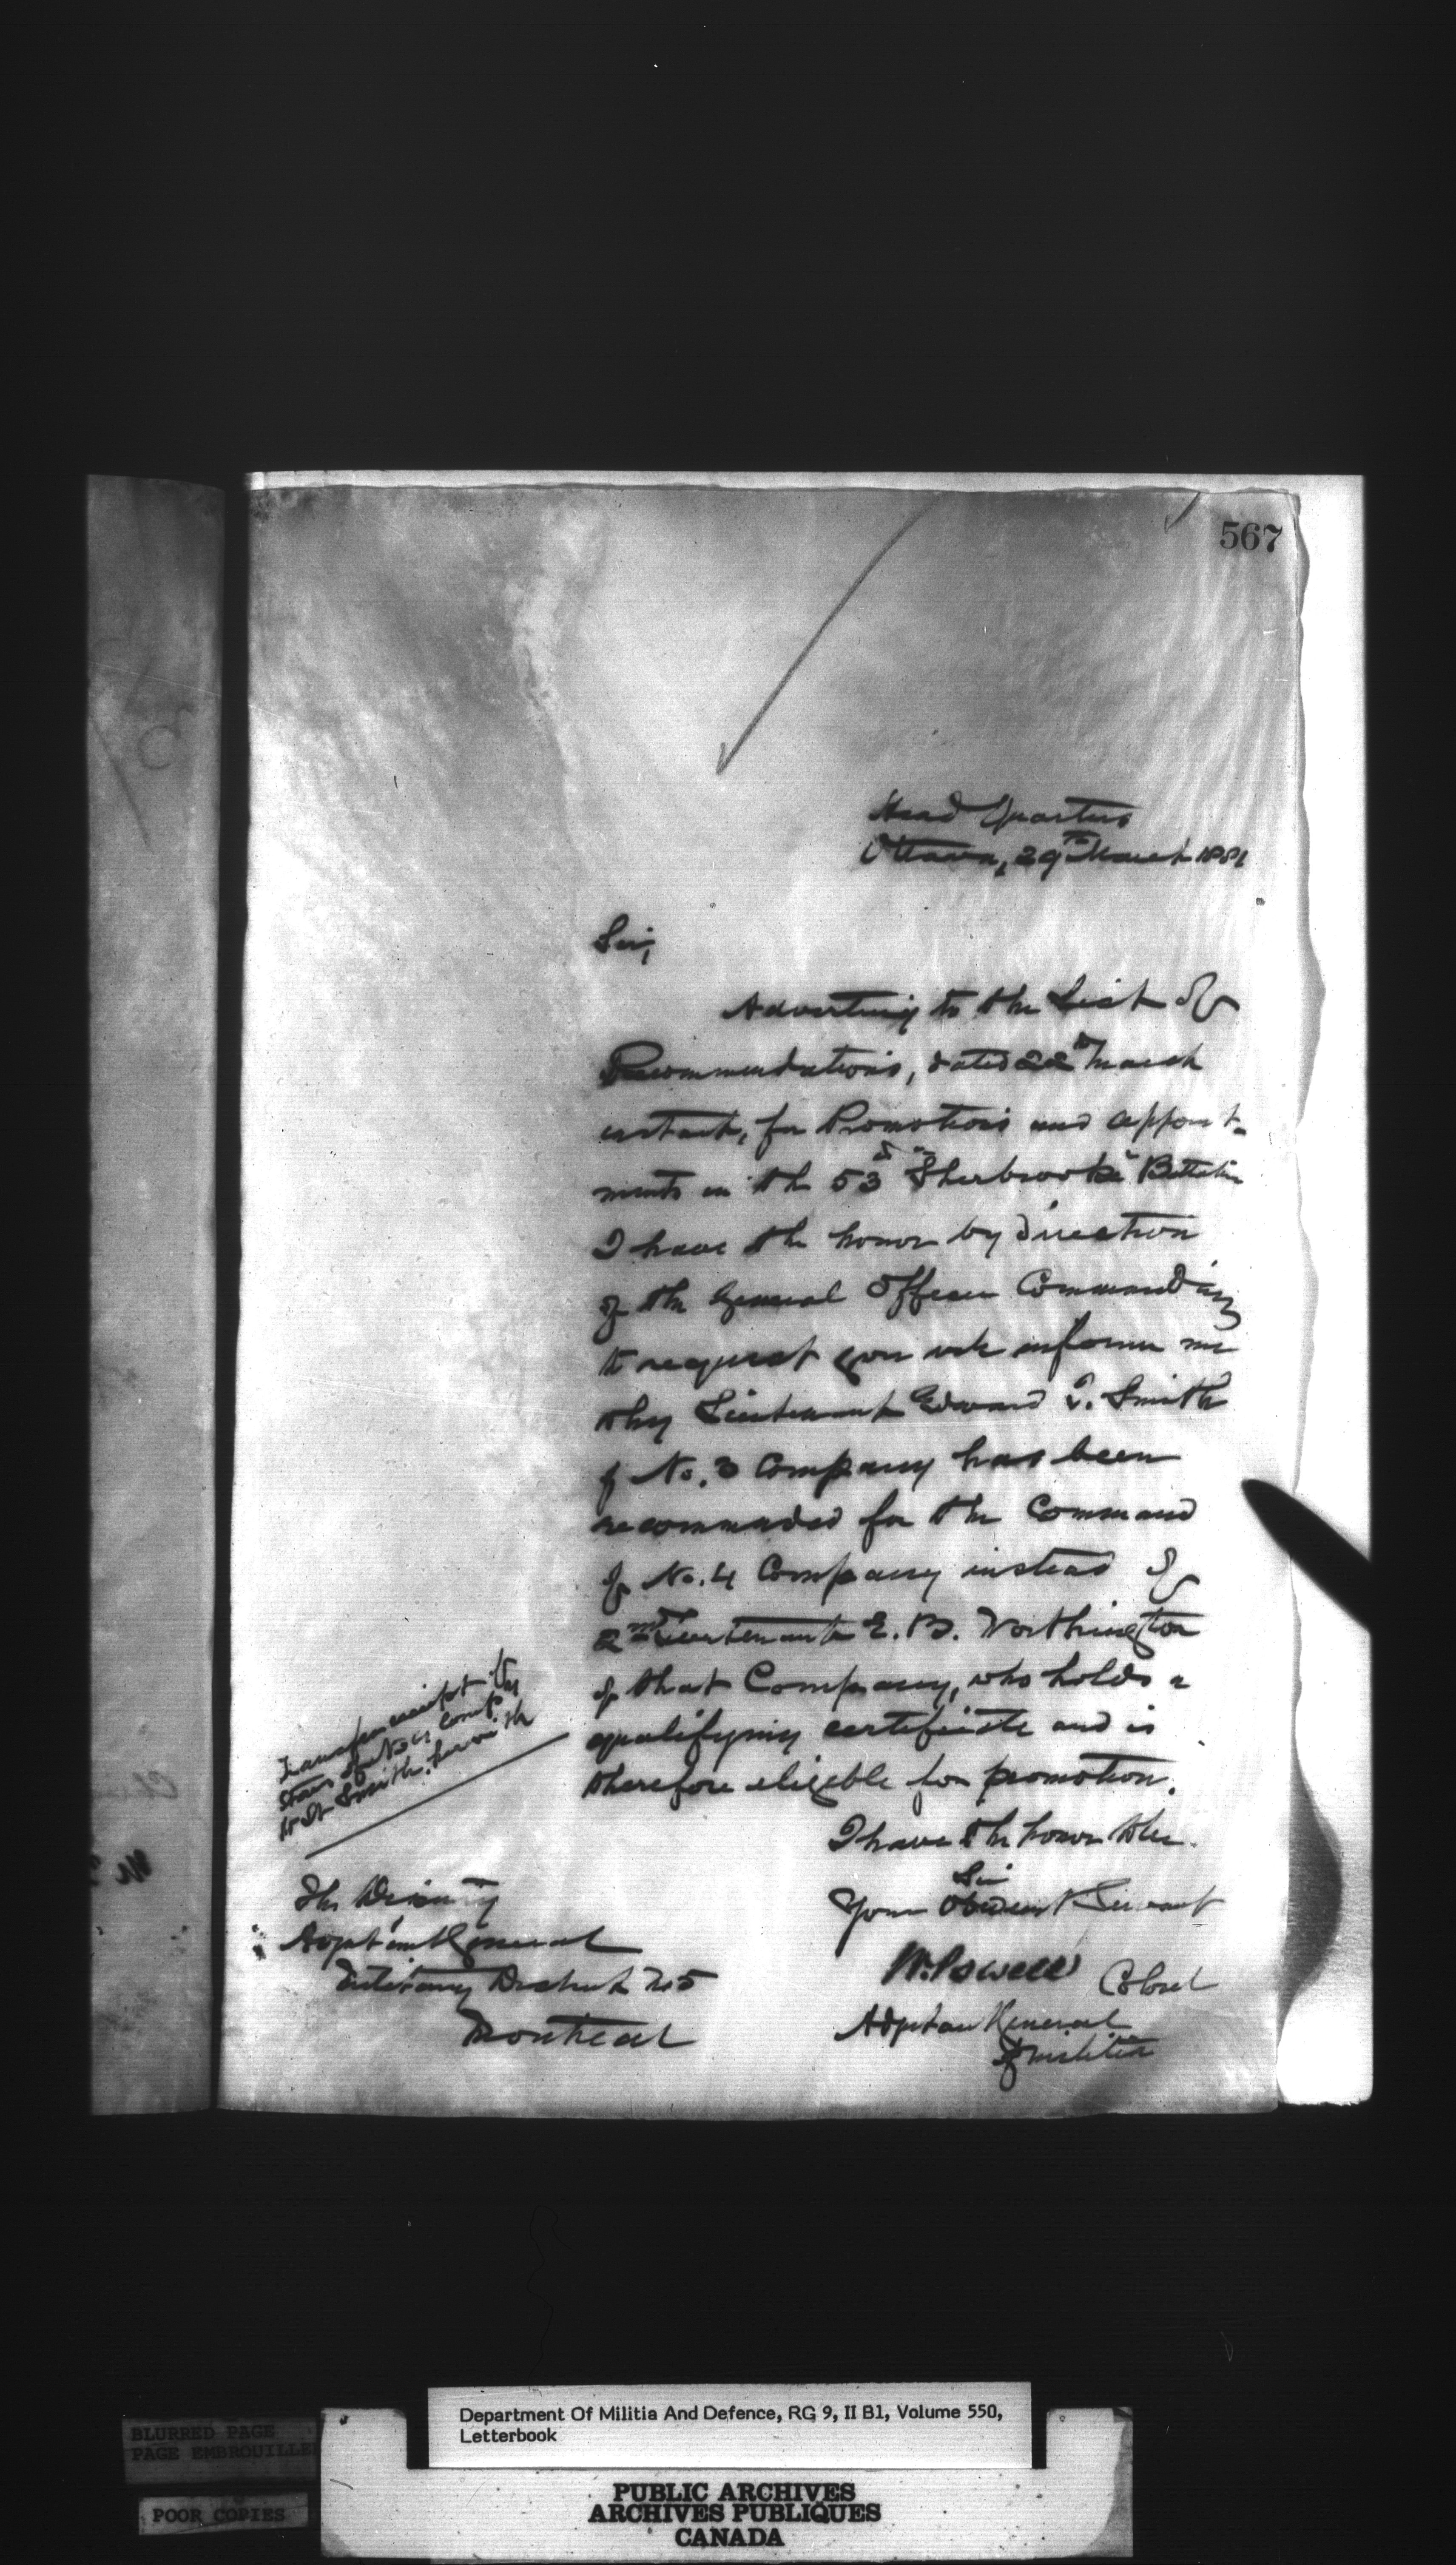 567
Head Quarters
Ottawa, 29th March 1881
Sir,
Adverting to the List of
Recommendations, dated 22nd March
instant, for Promotions and appoint-
ments in the 53d "Sherbrooke" Battalion
I have the honor by direction
of the General Officer Commanding
to request you will inform me
why Lieutenant Edward Smith
of No. 3 Company has been
recommended for the Command
of No. 4 Company instead of
2nd Lieutenant E. B. Worthington
of that Company, who holds a
qualifying certificate and is
therefore eligible for promotion.
I have the honor to be
Sir
Your Obedient Servant
W. Powell Colonel
Adjutant General
of Militia
Transfer receipt for
Stores of No 4 Comp
to Lt Smith herewith
The Deputy
Adjutant General
Military District No 5
Montreal
BLURRED PAGE
PAGE EMBROUILLEE
POOR COPIES
Department Of Militia And Defence, RG 9, II B1, Volume 550,
Letterbook
PUBLIC ARCHIVES
ARCHIVES PUBLIQUES
CANADA